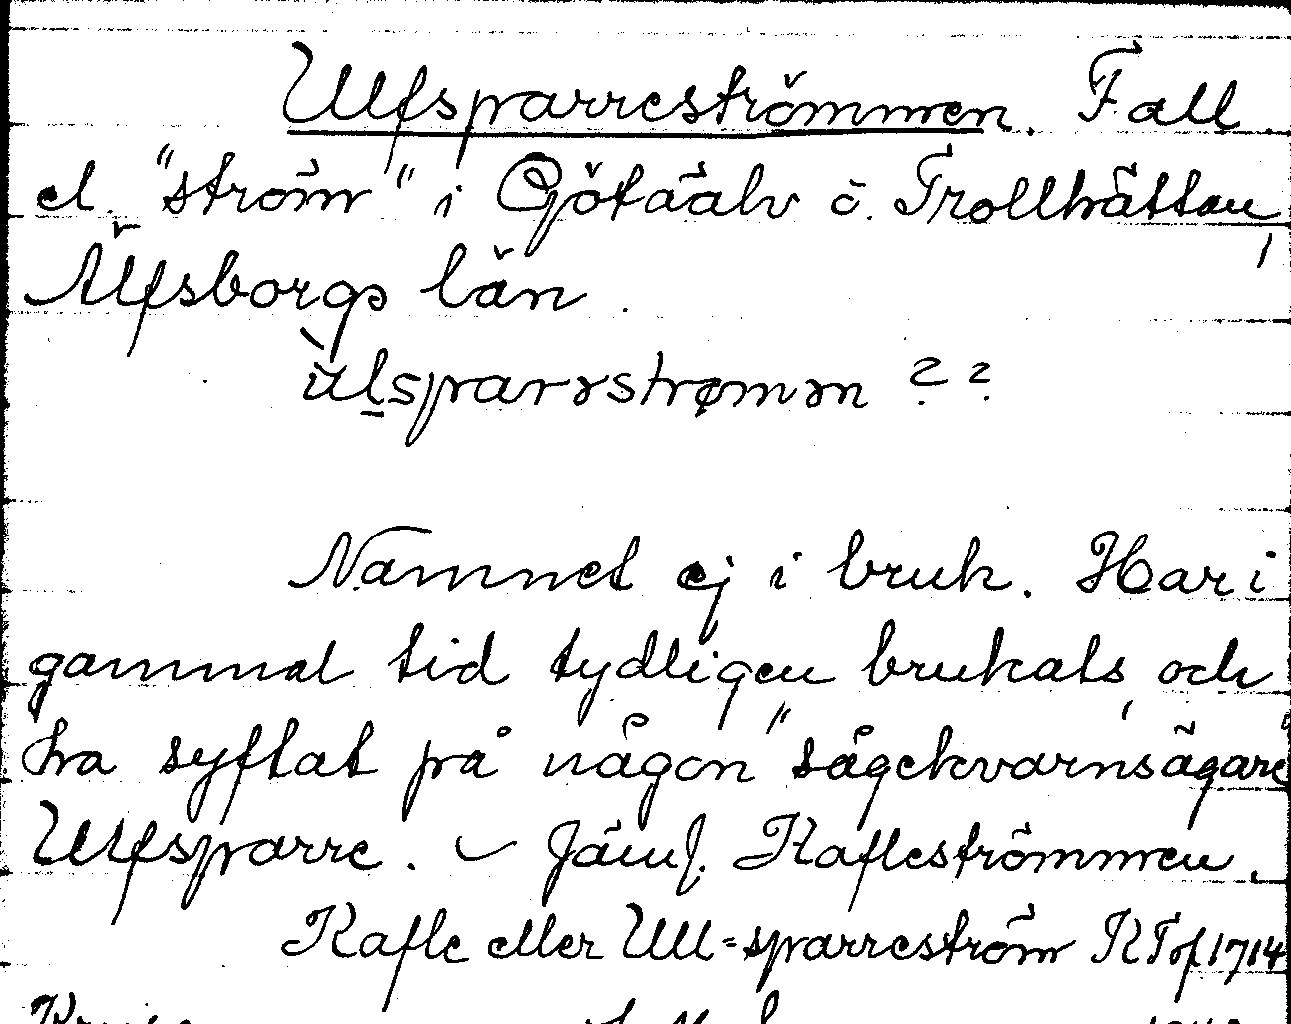 Ulfsparreströmmen. Fall
el. "ström" i Götaälv ö. Trollhättan,
Älfsborgs län.
ùlsparrstrømmn ? ?
Namnet ej i bruk. Har i
gammal tid tydligen brukats, och
ha syftat på någon "sågekvarnsägare"
Ulfsparre. – Jämf. Kafleströmmen.
Kafle eller Ull=sparreström KTof 1714